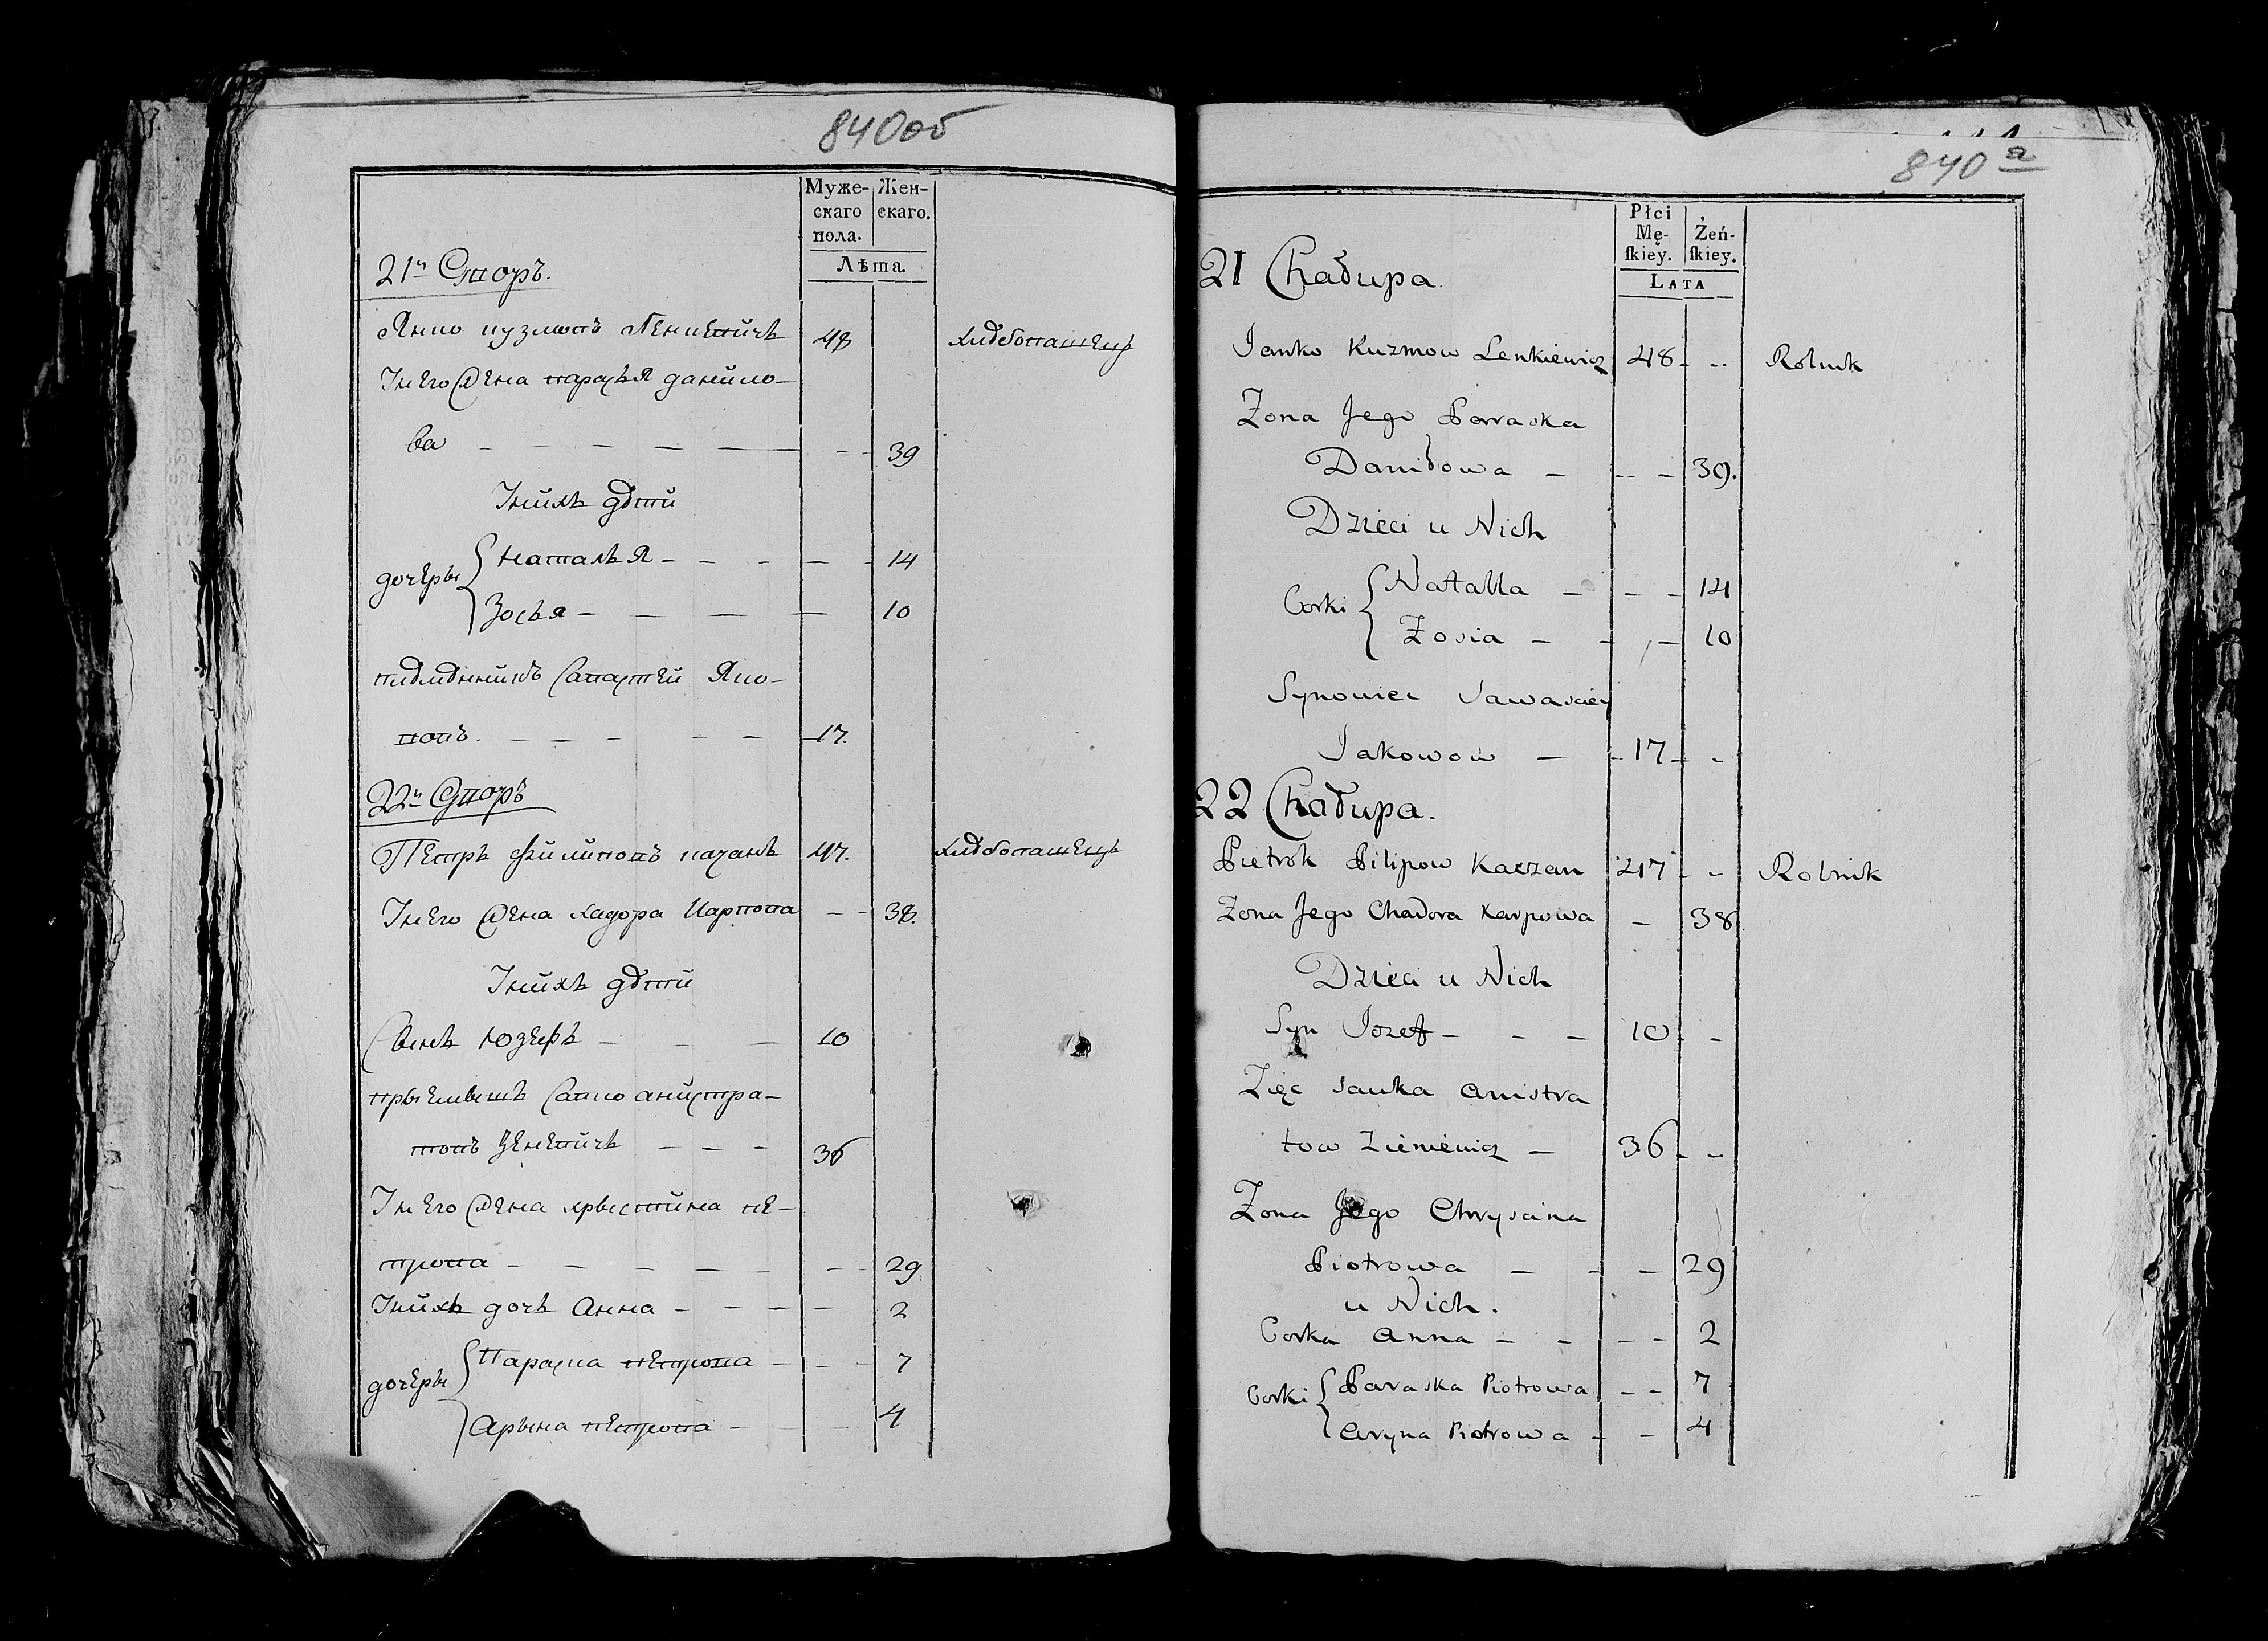 840об
Муже- Жен-
скаго скаго.
пола.
Лѣта.
21й Дворъ.
Янко кузмовъ Ленкевичъ 48 хлѣбопашецъ
Унего жена параскя данило-
ва — — — — — — 39
Унихъ дѣти
дочеры { Наталья — — — — 14
Зосья — — — — 10
племенникъ Савастей Яко-
вовъ. — — — — — 17.
22й Дворъ
Петръ филиповъ качанъ 47. хлѣбопашецъ
Унего жена хадора Карпова — — 38.
Унихъ дѣти
Сынъ Юзефъ — — — 10
прыемышъ Савко анистра-
товъ Зеневичъ — — — 36
Унего жена хрыстина пе-
трова — — — — — — 29
Унихъ дочъ Анна — — — — 2
дочеры { Параска петрова — — — 7
Арына петрова — — — 4
840 а
Płci Żeń-
Mę- skiey.
skiey.
LATA
21 Chałupa.
Janko Kuzmow Lenkiewicz 48 - -- Rolnik
Zona Jego Parraska
Daniłowa — -- — 39.
Dzieci u Nich
Corki { Natalla — — — 14
Zosia — — — 10
Synowiec Sawasciey
Jakowow — - 17 - -
22 Chałupa.
Pietrok Pilipow Kaczan 47 - - Rolnik
Zona Jego Chadora Karpowa — 38
Dzieci u Nich
Syn Jozef — — — 10 - -
Zięc Sauka Anistra
tow Zieniewicz — 36 - -
Zona Jego Chryscina
Piotrowa — - — 29
u Nich.
Corka Anna — - — - 2
Corki { Paraska Piotrowa — - 7
Aryna Piotrowa - - 4